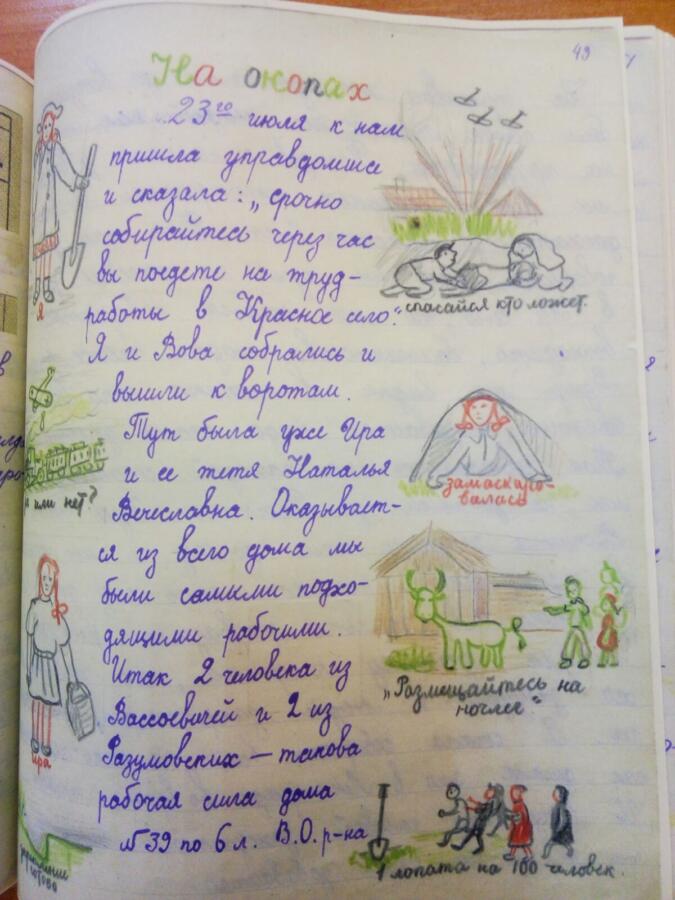 49
На окопах
23го июля к нам
пришла управдомша
и сказала: „срочно
собирайтесь через час
вы поедете на труд-
работы в Красное село."
Я и Вова собрались и
вышли к воротам.
Тут была уже Ира
и ее тетя Наталья
Вечеславна. Оказывает-
ся из всего дома мы
были самыми подхо-
дящими рабочими.
Итак 2 человека из
Вассоевичей и 2 из
Разумовских — такова
рабочая сила дома
№39 по 6 л. В.О. р-на
Я
или нет?
Ира
готово
спасайся кто может.
замаскиро-
валась
„Размещайтесь на
ночлег"
1 лопата на 100 человек.